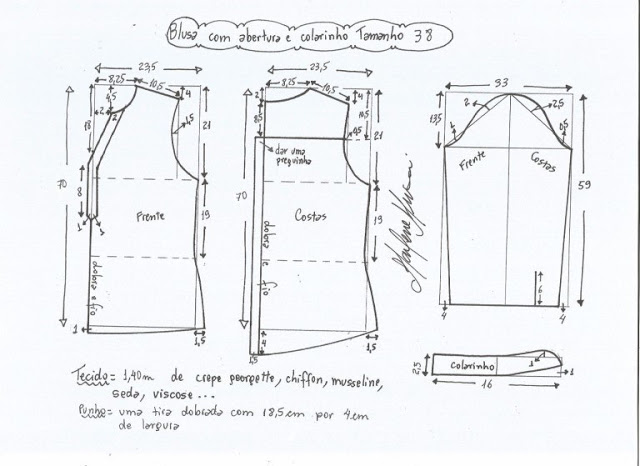 Blusa com abertura e colarinho Tamanho 38
23,5
8,25
10,5
4
4,5
2
2
18
1,5
21
70
8
19
Frente
1
1
dobra e fio
1
1,5
23,5
8,25
10,5
4
2
8,5
10,5
0,5
21
dar uma preguinha
70
19
Costas
dobra e fio
1,5
4
1,5
33
13,5
2
2,5
1
0,5
Frente
Costas
59
6
4
4
2,5
Colarinho
1
1
16
Tecido= 1,40m de crepe georgette, chiffon, musseline,
seda, viscose...
Punho= uma tira dobrada com 18,5cm por 4cm
de largura